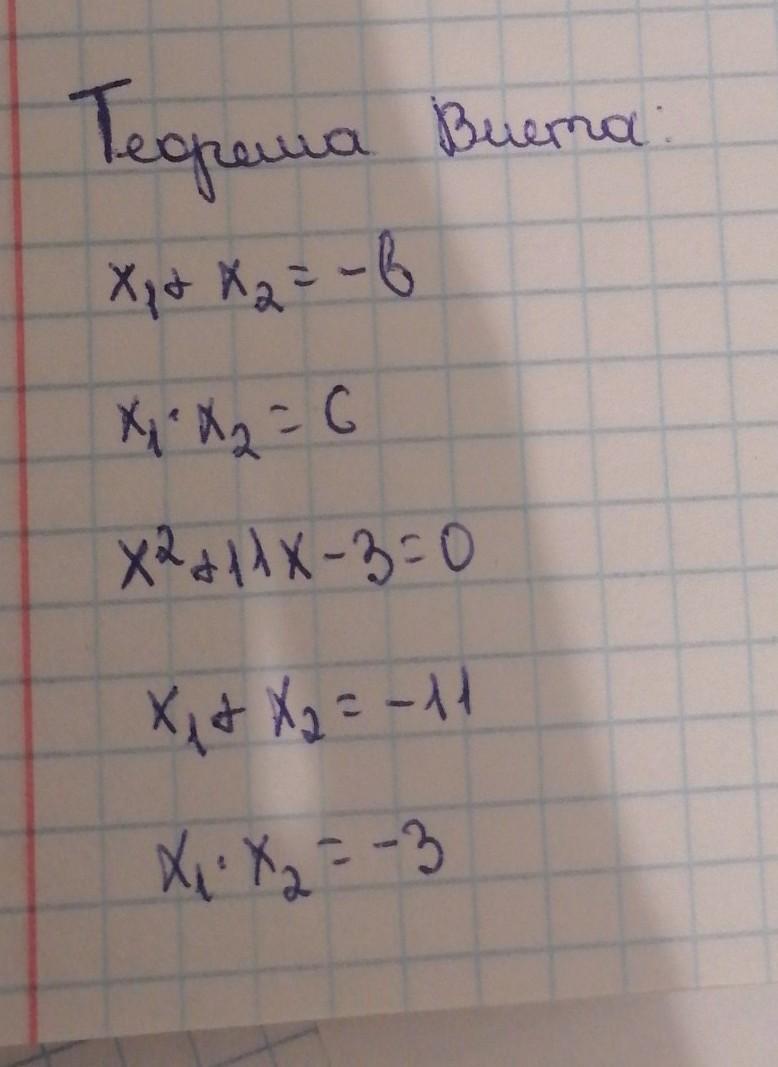 Теорема Виета:
x₁ + x₂ = -b
x₁ · x₂ = c
x² + 11x - 3 = 0
x₁ + x₂ = -11
x₁ · x₂ = -3